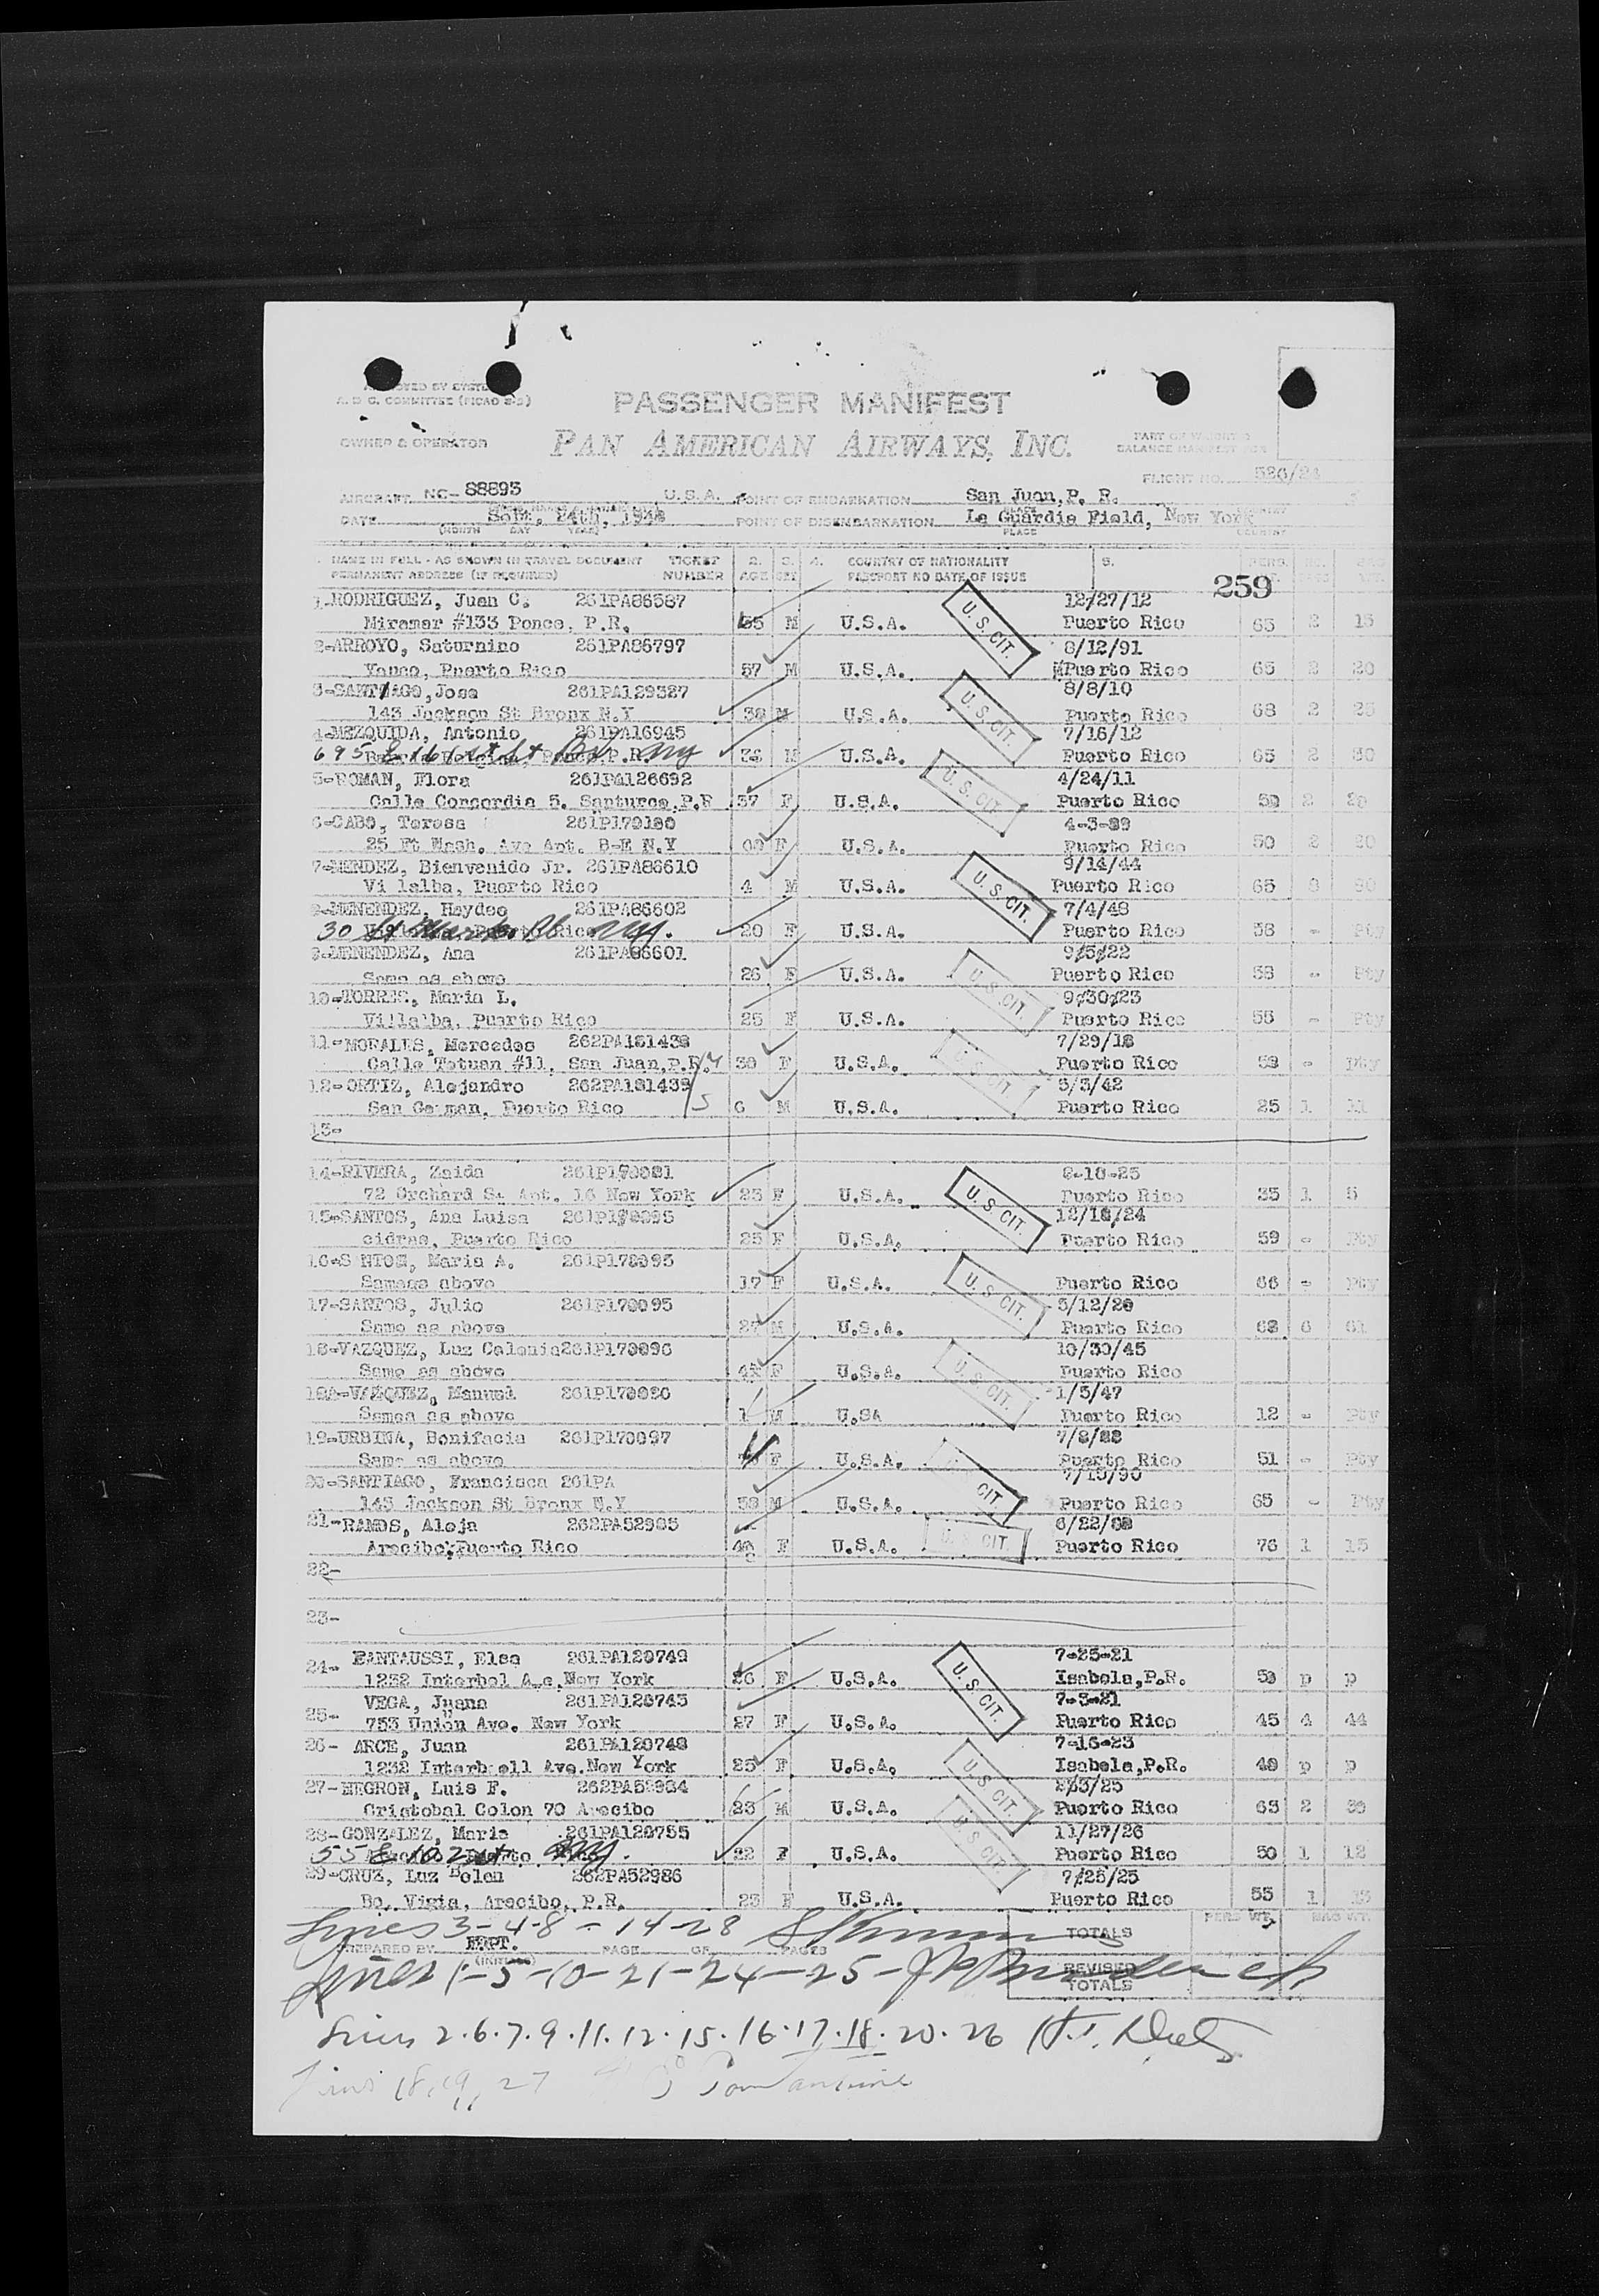 PASSENGER MANIFEST
A. & C. COMMITTEE
OWNER & OPERATOR
PAN AMERICAN AIRWAYS, INC.
FLIGHT NO. 526/24
AIRCRAFT NC- 88893 U.S.A. POINT OF EMBARKATION San Juan, P. R.
DATE 24th, POINT OF DISEMBARKATION La Guardia Field, New York
NAME IN FULL - AS SHOWN IN TRAVEL DOCUMENT TICKET 2. 3. 4. COUNTRY OF NATIONALITY 5.
PERMANENT ADDRESS (IF REQUIRED) NUMBER AGE SEX PASSPORT NO DATE OF ISSUE
259
1-RODRIGUEZ, Juan C. 261PA86587 12/27/12
Miramar #133 Ponce, P.R. M U.S.A. Puerto Rico 65 2 15
U. S. CIT.
2-ARROYO, Saturnino 261PA86797 8/12/91
Yauco, Puerto Rico 57 M U.S.A. Puerto Rico 65 2 20
3-SANTIAGO, Jose 261PA129327 8/8/10
143 Jackson St Bronx N.Y 38 M U.S.A. Puerto Rico 68 2 25
U. S. CIT.
4-MEZQUIDA, Antonio 261PA16945 7/16/12
695 E 161st St Bx. NY 36 M U.S.A. Puerto Rico 65 2 30
5-ROMAN, Flora 261PA126692 4/24/11
Calle Concordia 5. Santurce, P.R 37 F U.S.A. Puerto Rico 50 2 20
U. S. CIT.
6-CABO, Teresa 261P170180
25 Ft Wash. Ave Apt. 8-E N.Y F U.S.A. Puerto Rico 50 2 20
7-MENDEZ, Bienvenido Jr. 261PA86610 9/14/44
Vi lalba, Puerto Rico 4 M U.S.A. Puerto Rico 65
U. S. CIT.
8-MENENDEZ, Haydee 261PA86602 7/4/48
30 St Marks Pl NY. 20 F U.S.A. Puerto Rico 58 - Pty
9-MENENDEZ, Ana 261PA86601 9/5/22
Same as above 26 F U.S.A. Puerto Rico 58 - Pty
U. S. CIT.
10-TORRES, Maria L. 9/30/23
Villalba, Puerto Rico 25 F U.S.A. Puerto Rico 55 - Pty
11-MORALES, Mercedes 262PA181438 7/29/18
Calle Tetuan #11, San Juan, P.R. 30 F U.S.A. Puerto Rico 59 - pty
U. S. CIT.
12-ORTIZ, Alejandro 262PA181439 5/3/42
San German, Puerto Rico 6 M U.S.A. Puerto Rico 25 1 11
13-
14-RIVERA, Zaida
72 Orchard St Apt. 16 New York 23 F U.S.A. Puerto Rico 35 1 5
U. S. CIT.
15-SANTOS, Ana Luisa 12/18/24
cidras, Puerto Rico 25 F U.S.A. Puerto Rico 59 - Pty
16-S NTOS, Maria A. 261P170095
Sameas above 17 F U.S.A. Puerto Rico 66 - Pty
U. S. CIT.
17-SANTOS, Julio 261P170095 5/12/20
Same as above M U.S.A. Puerto Rico 68 6 61
18-VAZQUEZ, Luz Celenia 261P170096 10/30/45
Same as above F U.S.A. Puerto Rico
U. S. CIT.
18A-VAZQUEZ, Manuel 1/5/47
Samea as above 1 M U.SA Puerto Rico 12 - Pty
19-URBINA, Bonifacia 261P170097
Same as above F U.S.A. Puerto Rico 51 - Pty
CIT.
20-SANTIAGO, Francisca 261PA 7/15/90
143 Jackson St Bronx N.Y 58 M U.S.A. Puerto Rico 65 - Pty
21-RAMOS, Aleja 262PA52985
Arecibo, Puerto Rico F U.S.A. Puerto Rico 76 1 15
U. S. CIT.
22-
23-
24- 261PA120749 7-25-21
Elsa
New York 26 F U.S.A. Isabela, P.R. 50 p p
U. S. CIT.
VEGA, Juana 261PA120745 7-3-21
25- 753 Union Ave. New York 27 F U.S.A. Puerto Rico 45 4 44
26- ARCE, Juan 261PA120748 7-16-23
Ave. New York 25 F U.S.A. Isabela, P.R. 40 p p
U. S. CIT.
27-NEGRON, Luis F.
Cristobal Colon 70 Arecibo 23 M U.S.A. Puerto Rico 63 2
U. S. CIT.
28-GONZALEZ, Maria 261PA120755 11/27/26
55 E 102 st NY. 22 F U.S.A. Puerto Rico 50 1 12
29-CRUZ, Luz Belen 262PA52986 7/25/25
Bo. Vigia, Arecibo, P.R. 23 F U.S.A. Puerto Rico 55 1
Lines 3-4-8-14-28
TOTALS PERS WT. BAG WT.
PREPARED BY (INITIALS) PAGE OF PAGES
Lines 1-5-10-21-24-25-
REVISED TOTALS
Lines 2.6.7.9.11.12.15.16.17.18.20.26
Lines 18, 19, 27